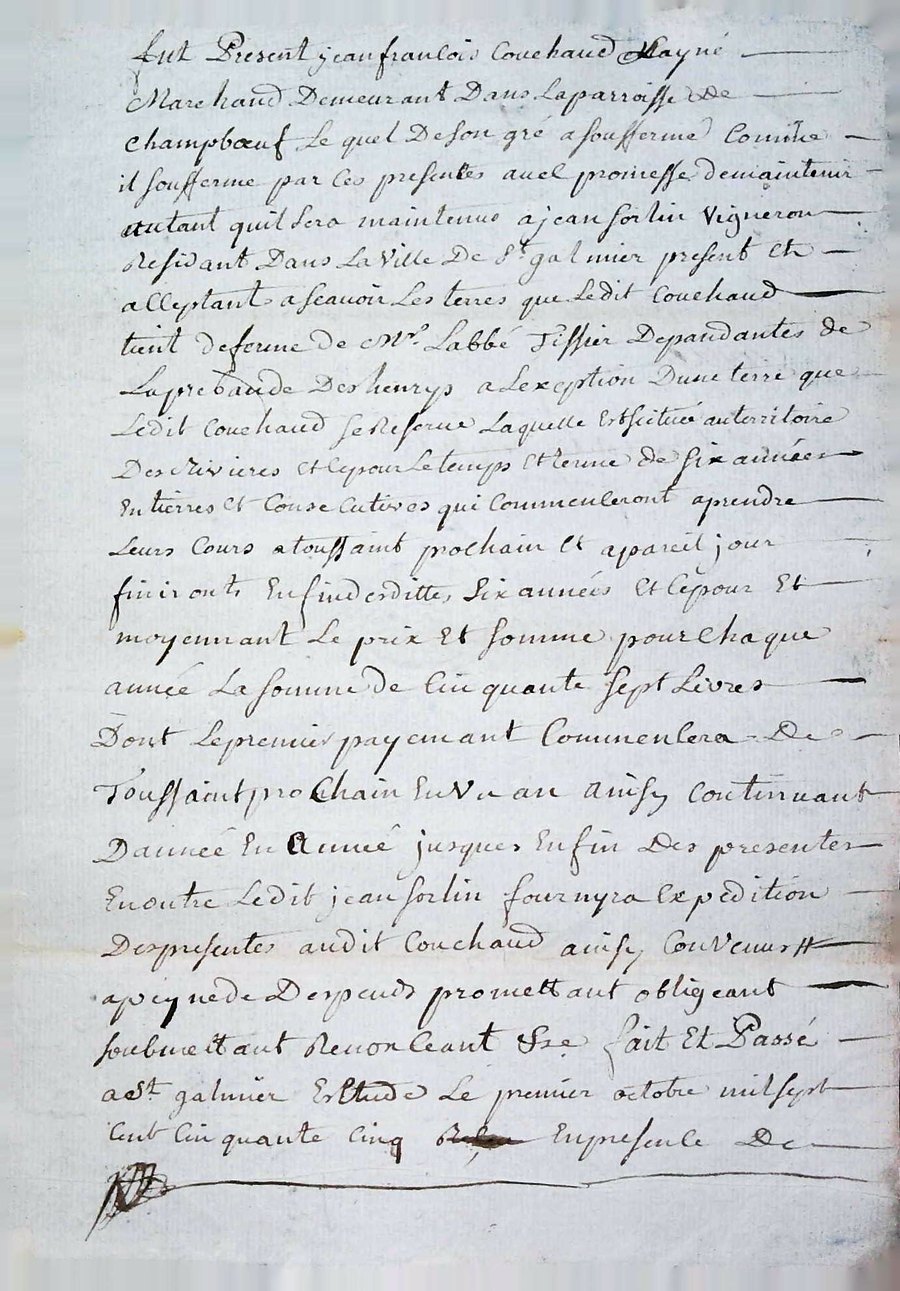 fut Present jean francois Couchaud Layné
Marchand Demeurant Dans La parroisse de
Champbœuf Le quel De son gré a soufferme Comme
il soufferme par Ces presentes avec promesse de maintenir
autant quil sera maintenus a jean sorlin Vigneron
Residant Dans La Ville De St galmier present Et
acceptant a scavoir Les terres que Ledit Couchaud
tient de ferme de Mr. Labbé Tissier Dependantes de
La prebande Des henrys a Lexception Dune terre que
Ledit Couchaud se Reserve Laquelle Est scituée au territoire
Des Rivieres Et Ce pour Le temps Et terme de six années
Entierres Et Consecutives qui Commenceront aprendre
Leurs Cours a toussaint prochain Et a pareil jour
finiront En fin desdittes six années Et Ce pour Et
moyennant Le prix Et somme pour Chaque
année La somme de Cinquante sept Livres
Dont Le premier payemant Commencera De
Toussaint prochain En Vn an ainsy Continuant
Dannée En Année jusques En fin Des presentes
En outre Ledit jean sorlin fournyra Expedition
Des presentes audit Couchaud ainsy Convenus
a peyne de Despends promettant obligeant
soubmettant Renonceant &ce fait Et Passé
a St galmier Estude Le premier octobre mil sept
Cent Cinquante Cinq En presence De